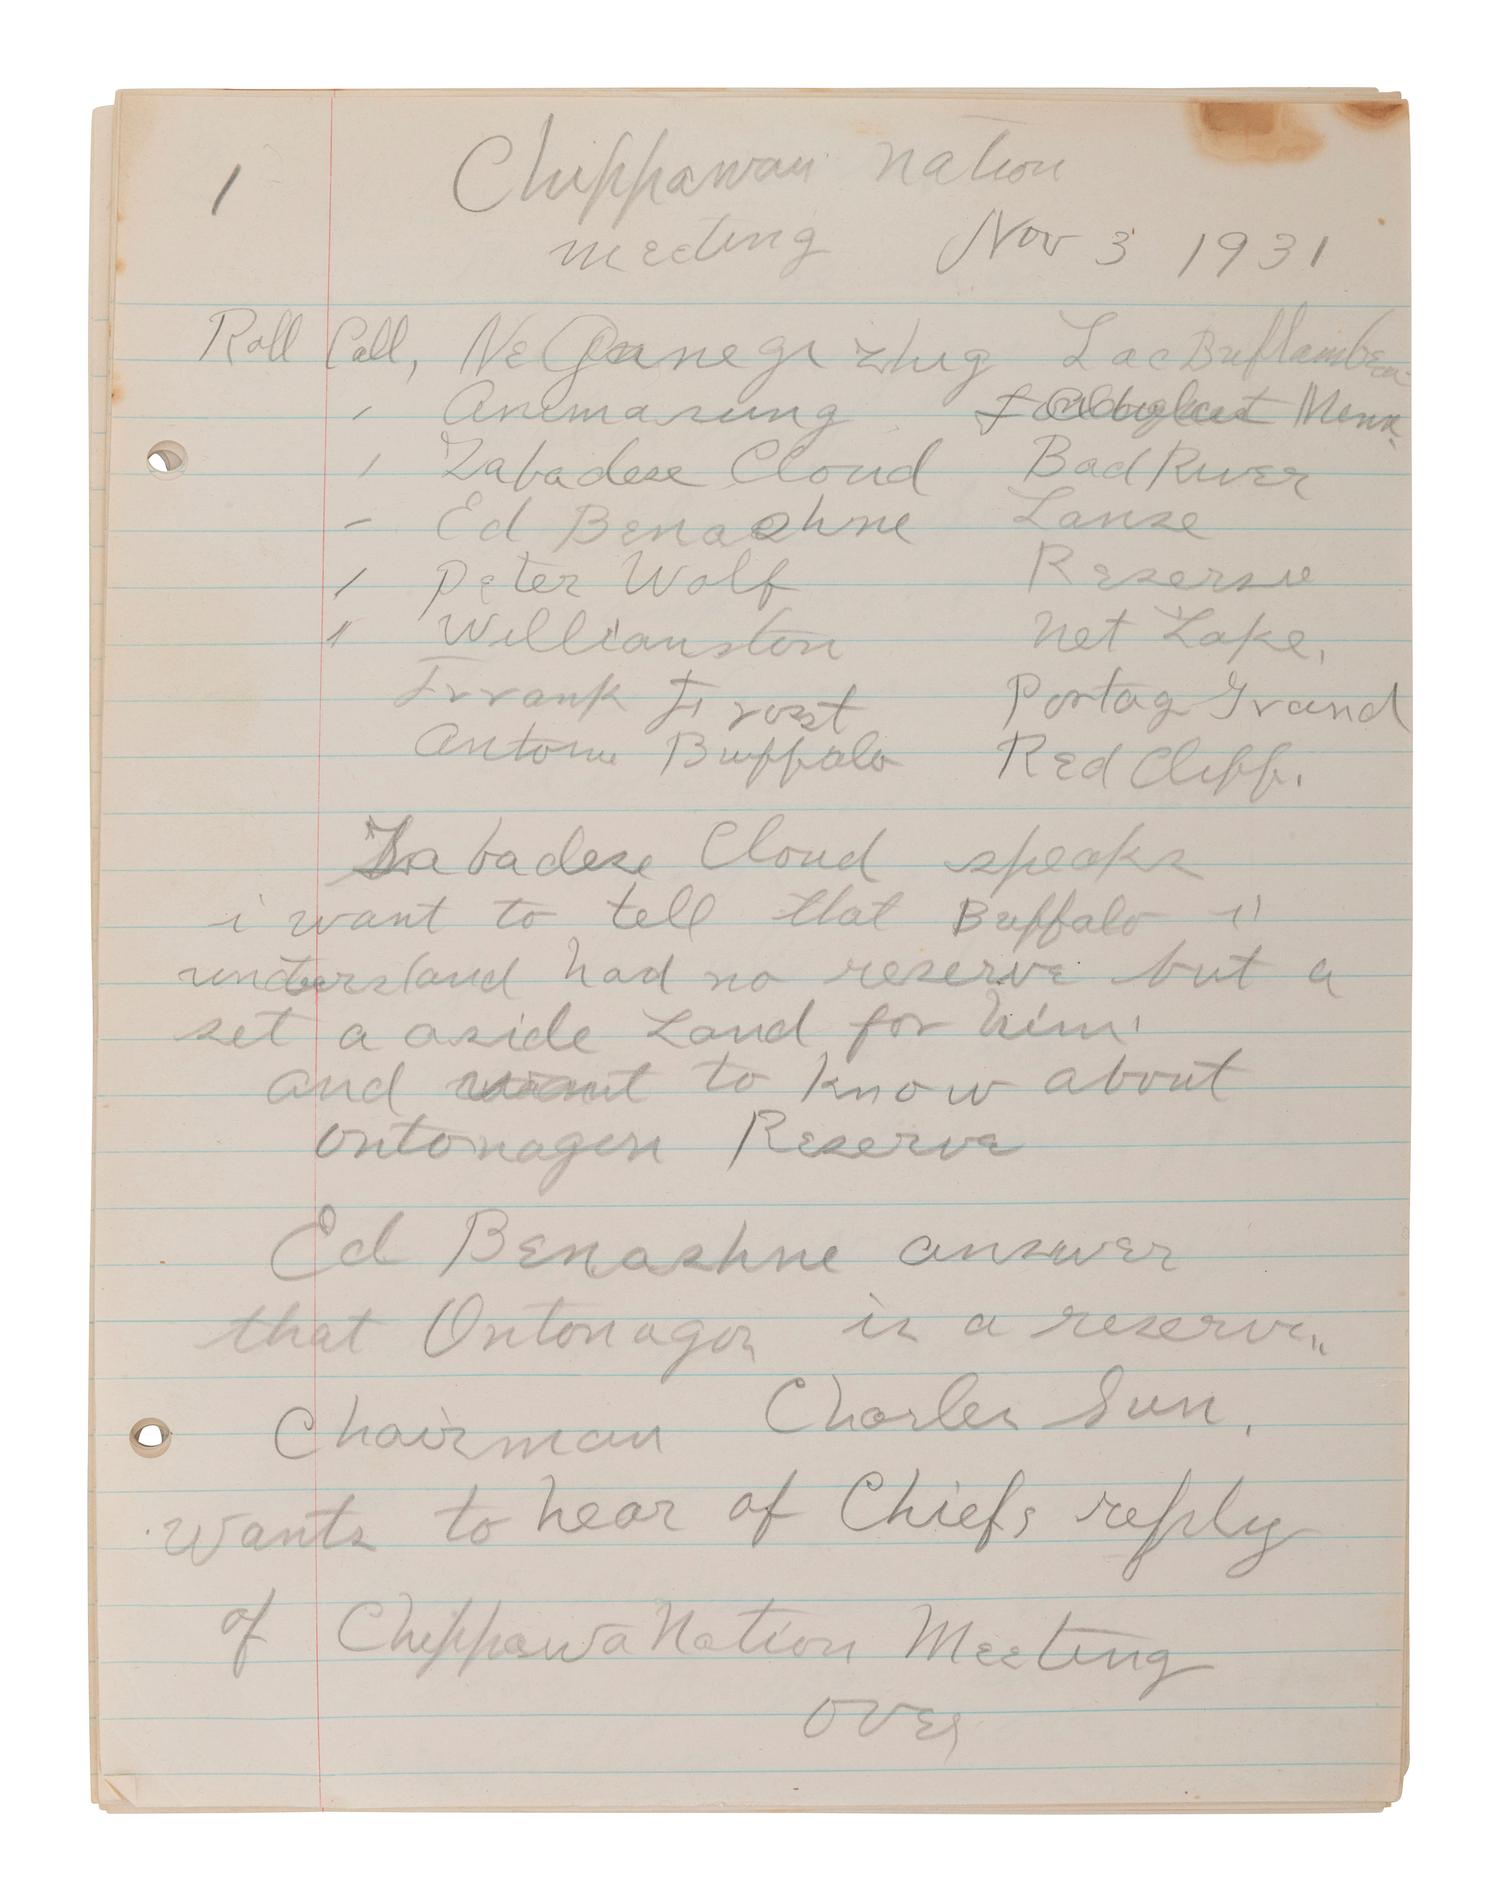 1
Chippawan nation
meeting Nov 3 1931
Roll Call, NeGanegizhig Lac Buflambeau
" Animasung Minn.
" Zabadese Cloud Bad River
" Ed Benashne Lanse
" Peter Wolf Reserve
" Willianston net Lake,
Frrank Frost Portag Grand
Antoine Buffalo Red Cliff.
Zabadese Cloud speaks
i want to tell that Buffalo i
understand had no reserve but a
set a aside Land for him.
and want to know about
Ontonagen Reserve
Ed Benashne answer
that Ontonagon is a reserve.
Chairman Charles Sun,
wants to hear of Chiefs reply
of Chippawa Nation Meeting
over